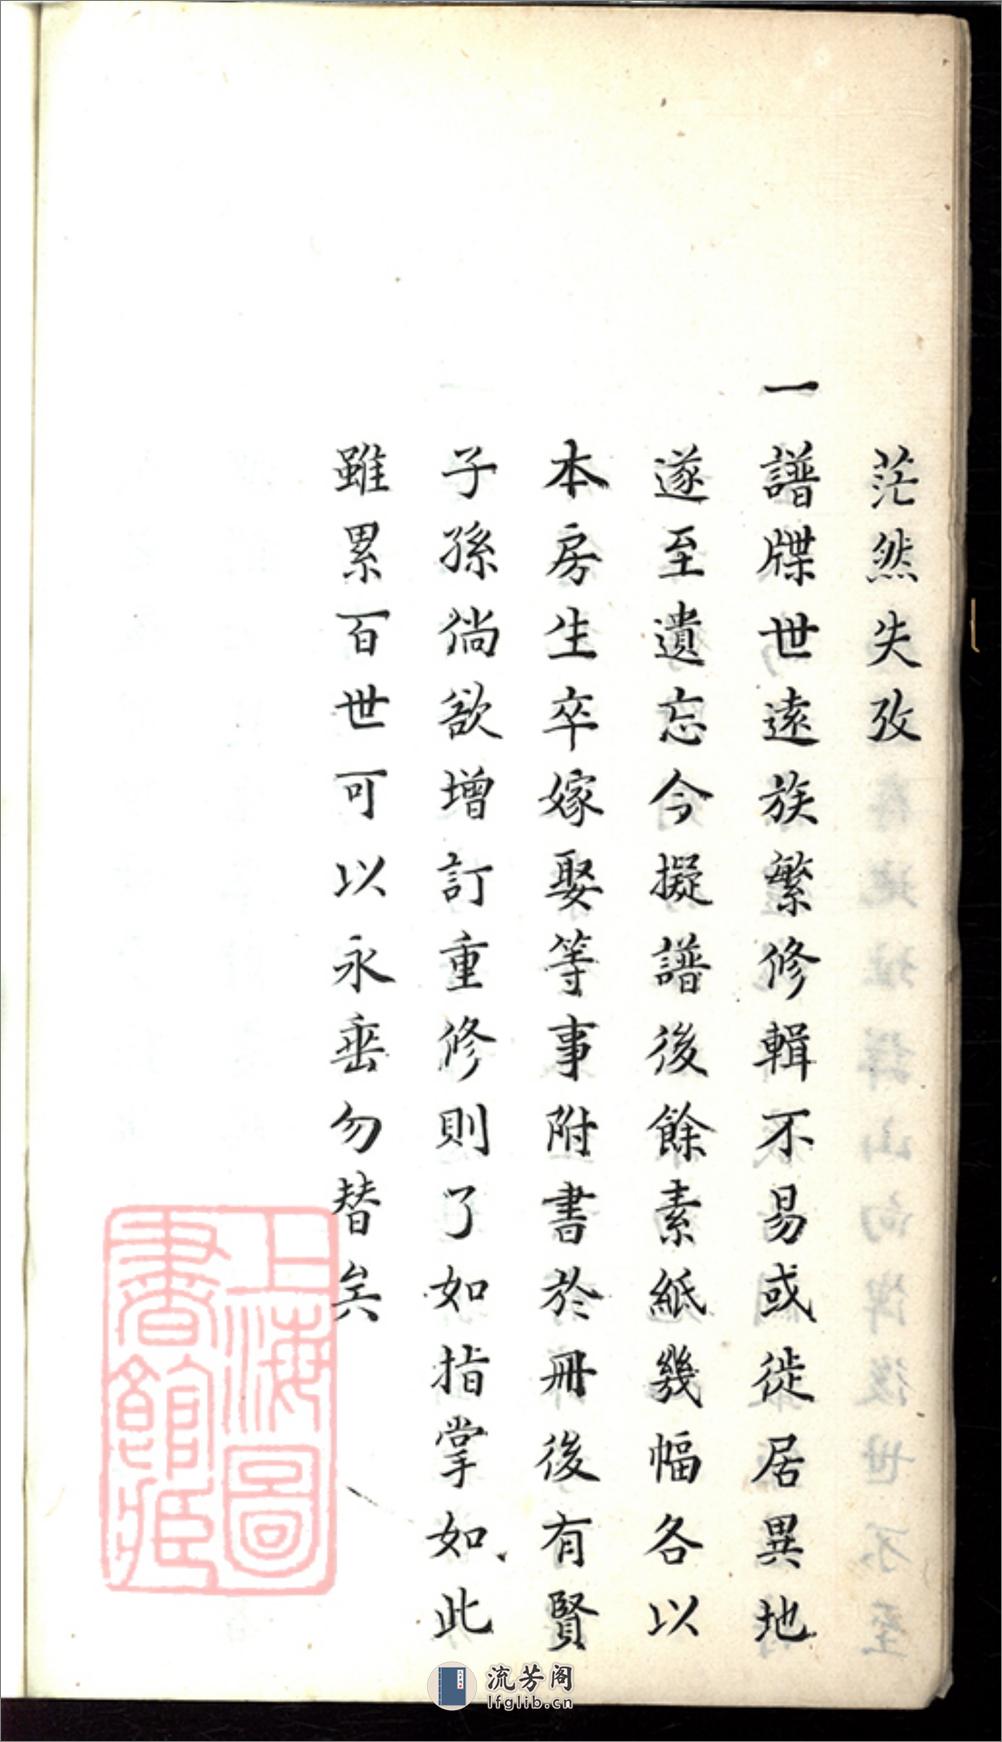 茫然失攷
一譜牒世遠族繁修輯不易或徙居異地
遂至遺忘今擬譜後餘素紙幾幅各以
本房生卒嫁娶等事附書於冊後有賢
子孫倘欲增訂重修則了如指掌如此
雖累百世可以永垂勿替矣
上海圖
書館藏
流芳阁
lfglib.cn